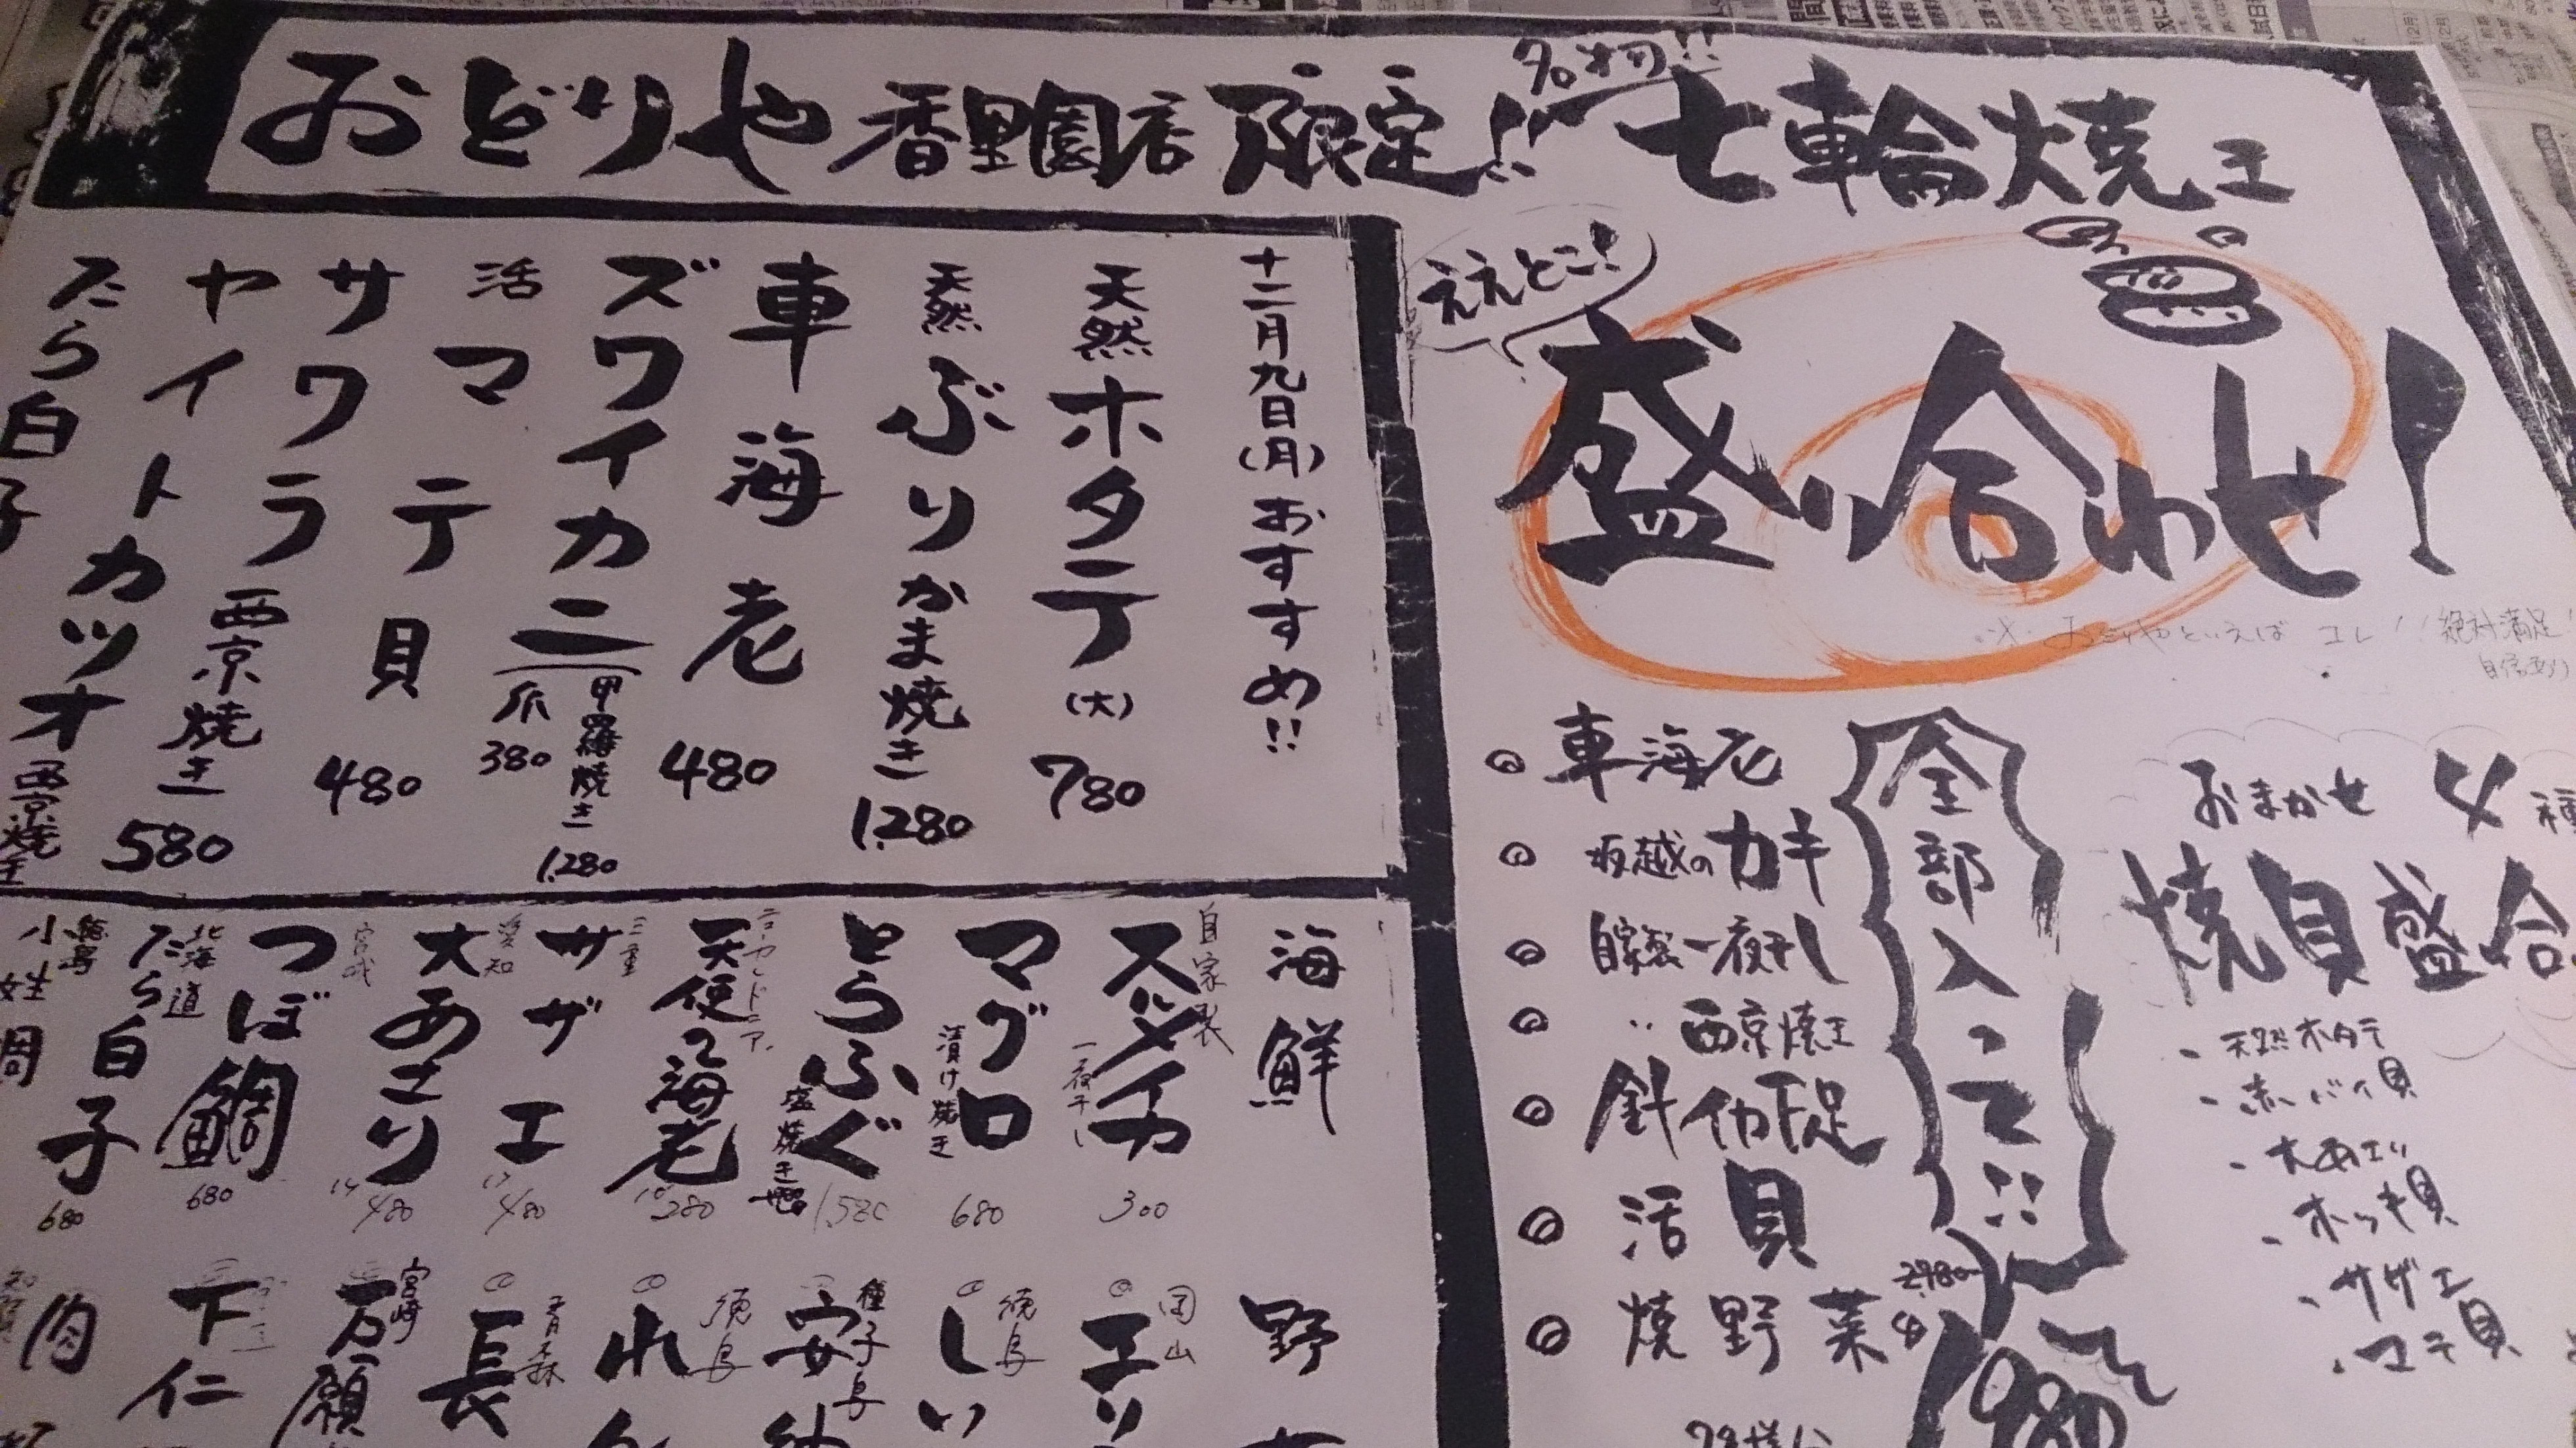 おどりや 香里園店 限定!!
名物!!
七輪焼き
ええとこ!
盛り合わせ!
十二月九日(月)おすすめ!!
天然ホタテ(大) 780
天然ぶりかま焼き 1,280
車海老 480
ズワイカニ
甲羅焼き 1,280
爪 380
活マテ貝 480
サワラ西京焼き 580
ヤイトカツオ西京焼き
たら白子
※おどりやといえばコレ!!絶対満足
自信あり
◎車海老
◎坂越のカキ
◎自家製一夜干し
◎〃西京焼き
◎針イカ下足
◎活貝
◎焼野菜
全部入って!!
2,980
1980
おまかせ4種
焼貝盛合
- 天然ホタテ
- 赤バイ貝
- 大あさり
- ホッキ貝
- サザエ
- マテ貝
海鮮
自家製
スルメイカ
一夜干し 300
マグロ
漬け焼き 680
とらふぐ
塩焼き
ニューカレドニア
天使の海老 280
三重
サザエ 480
愛知
大あさり 480
宮城
つぼ鯛 680
北海道
たら白子 680
徳島
小姓鯛
野
岡山
徳島
しい
種子島
安納
徳島
れ
青森
長
宮崎
万願
下仁
肉